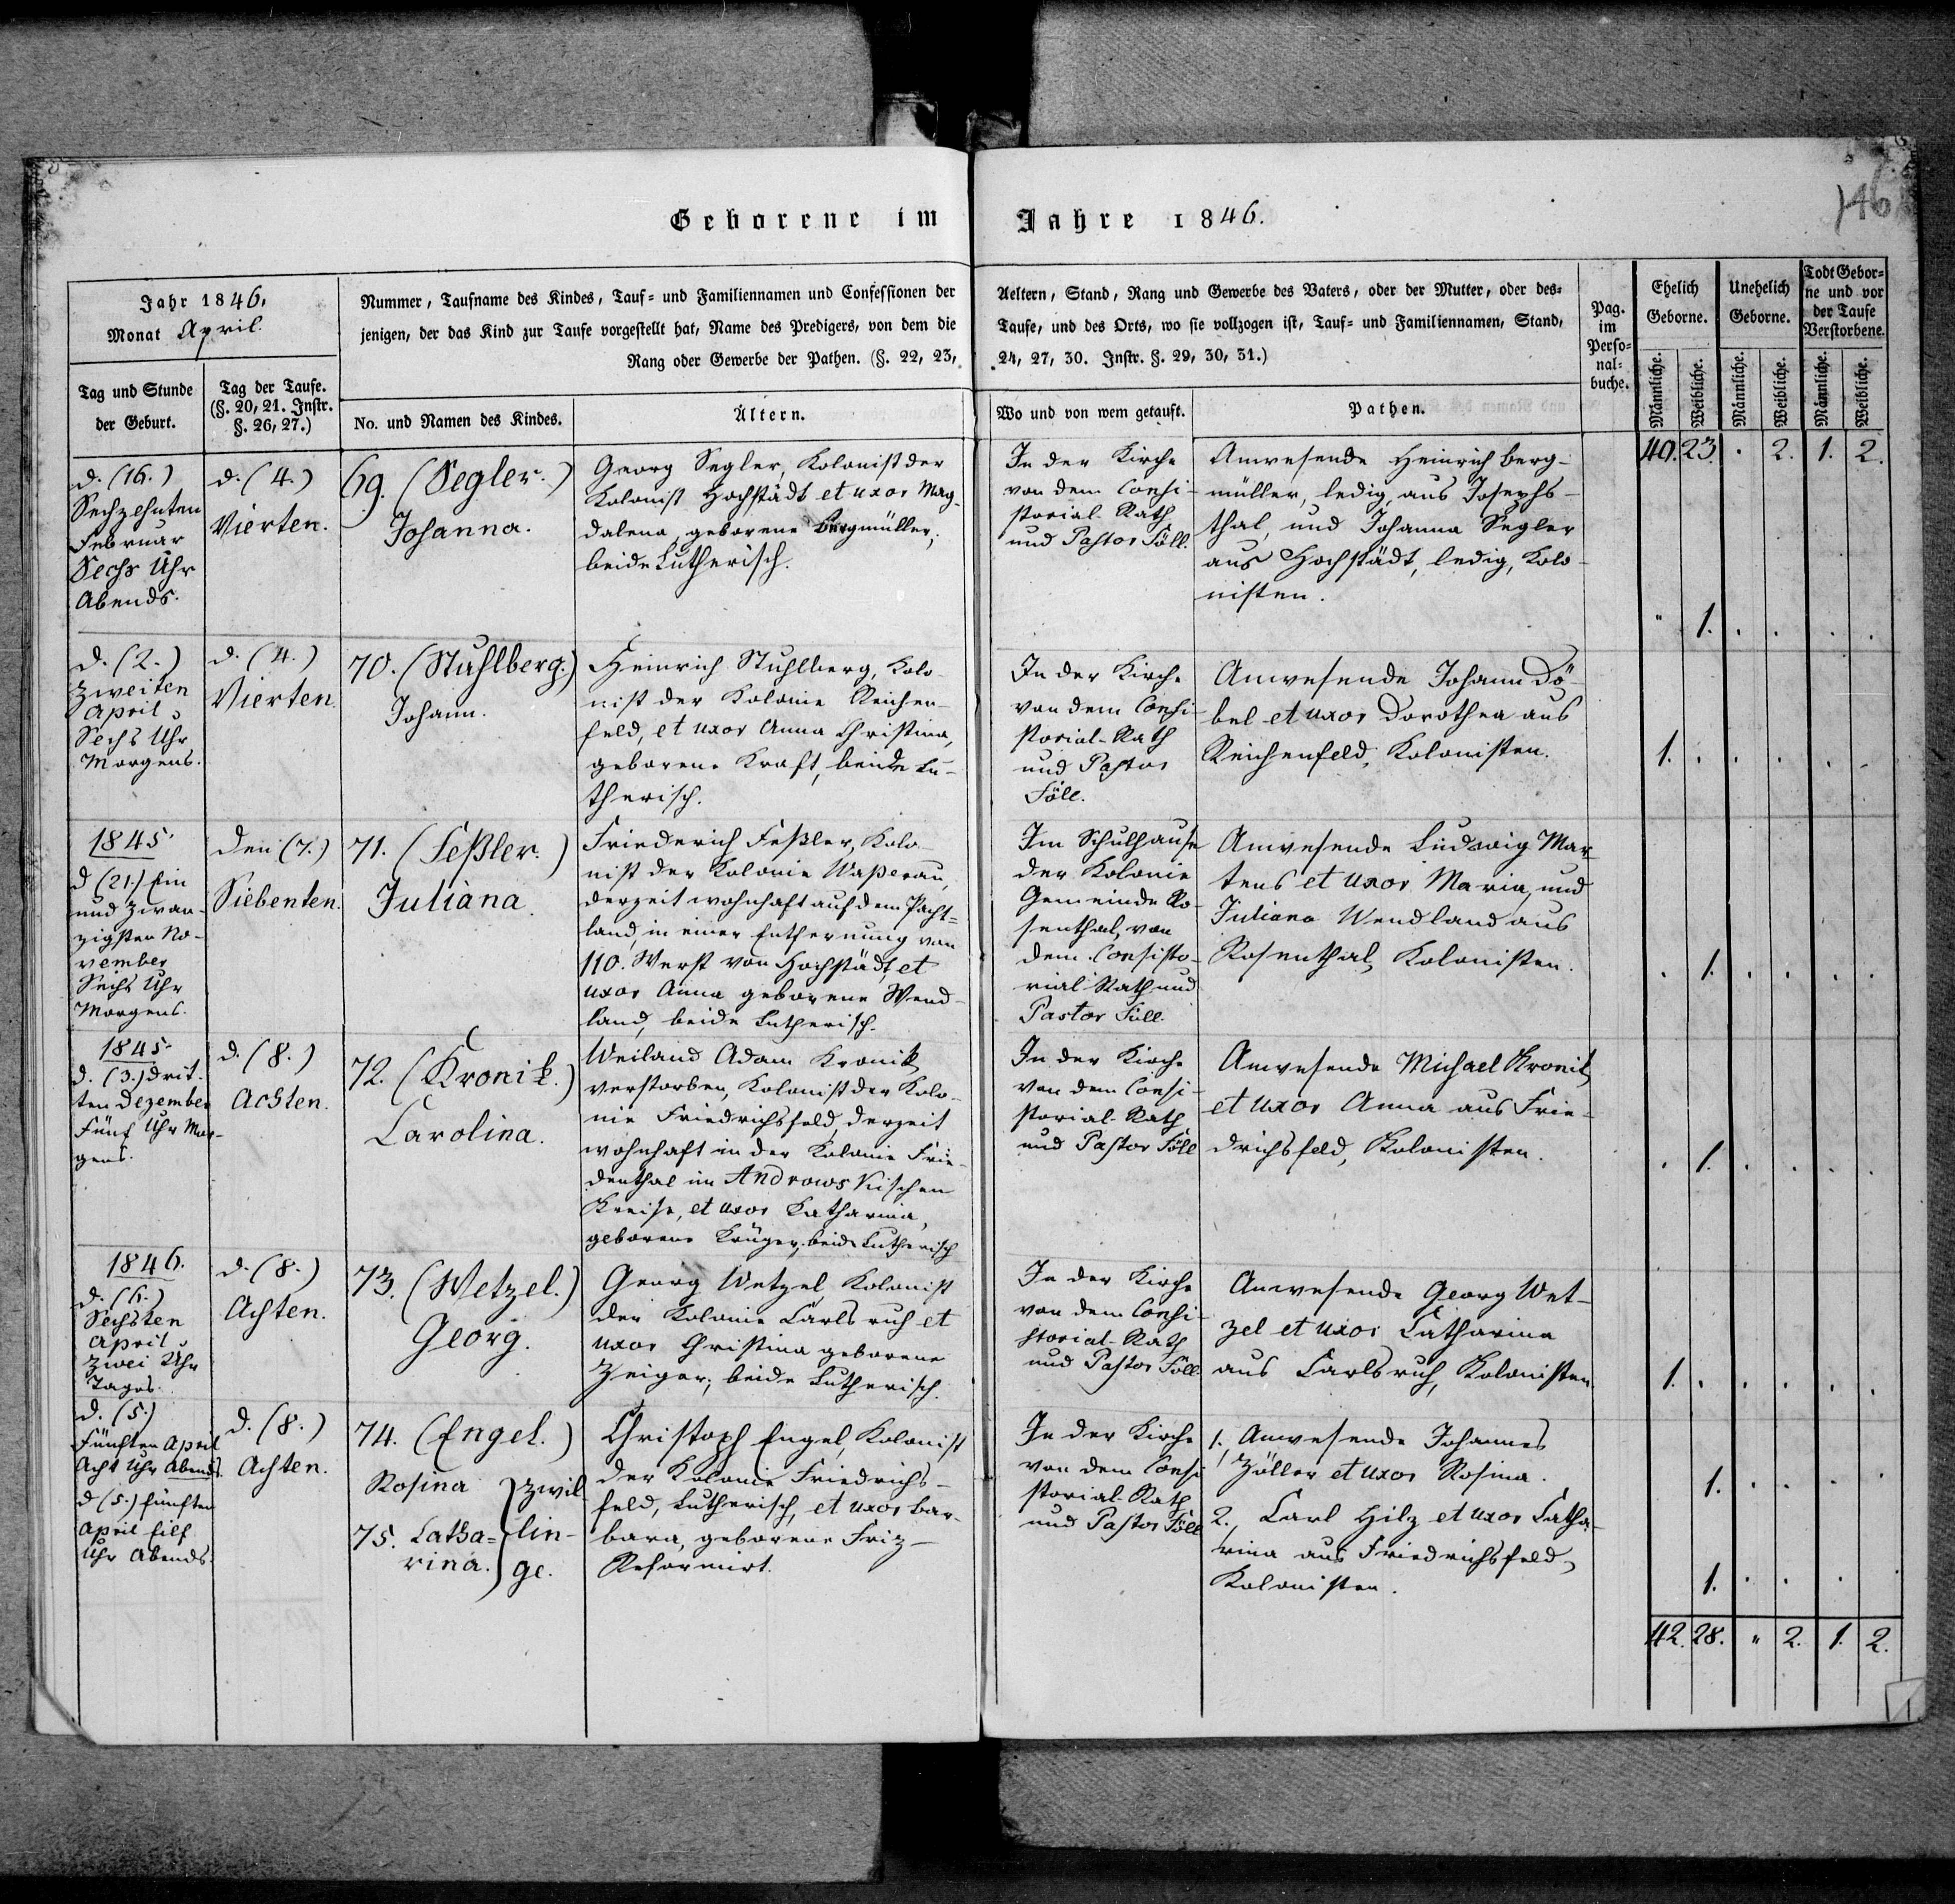 Geborene im Jahre 1846.
146
Jahr 1846.
Monat April.
Nummer, Taufname des Kindes, Tauf- und Familiennamen und Confessionen der
jenigen, der das Kind zur Taufe vorgestellt hat, Name des Predigers, von dem die
Rang oder Gewerbe der Pathen. (§. 22, 23,
Aeltern, Stand, Rang und Gewerbe des Vaters, oder der Mutter, oder des-
Taufe, und des Orts, wo sie vollzogen ist, Tauf- und Familiennamen, Stand,
24, 27, 30. Instr. §. 29, 30, 31.)
Pag.
im
Perso-
nal-
buche.
Ehelich
Geborne.
Unehelich
Geborne.
Todt Gebor-
ne und vor
der Taufe
Verstorbene.
Tag und Stunde
der Geburt.
Tag der Taufe.
(§. 20, 21. Instr.
§. 26, 27.)
No. und Namen des Kindes.
Ältern.
Wo und von wem getauft.
Pathen.
Männliche.
Weibliche.
Männliche.
Weibliche.
Männliche.
Weibliche.
40. 23. . 2. 1. 2.
d. (16.)
Sechzehnten
Februar
Sechs Uhr
Abends.
d. (4.)
Vierten.
69. (Segler.)
Johanna.
Georg Segler, Kolonist der
Kolonist Hochstädt et uxor Mag-
dalena, geborene Bergmüller,
beide Lutherisch.
In der Kirche
von dem Consi-
storial-Rath
und Pastor Föll.
Anwesende Heinrich Berg-
müller, ledig aus Josephs-
thal, und Johanna Segler
aus Hochstädt, ledig, Kolo-
nisten.
" 1. . . . .
d. (2.)
Zweiten
April
Sechs Uhr
Morgens.
d. (4.)
Vierten.
70. (Stuhlberg.)
Johann.
Heinrich Stuhlberg, Kolo-
nist der Kolonie Reichen-
feld, et uxor Anna Christina,
geborene Kraft, beide Lu-
therisch.
In der Kirche
von dem Consi-
storial-Rath
und Pastor
Föll.
Anwesende Johann Dö-
bel et uxor Dorothea aus
Reichenfeld, Kolonisten.
1. . . . . .
1845.
d (21.) Ein
und zwan-
zigsten No-
vember
Sechs Uhr
Morgens.
den (7.)
Siebenten.
71. (Feßler.)
Juliana.
Friederich Feßler, Kolo-
nist der Kolonie Waßerau,
derzeit wohnhaft auf dem Pacht-
land, in einer Entfernung von
110. Werst von Hochstädt, et
uxor Anna geborene Wend-
land, beide Lutherisch.
Im Schulhause
der Kolonie
Gemeinde Ro-
senthal, von
dem Consisto-
rial Rath und
Pastor Föll.
Anwesende Ludwig Mar-
tens et uxor Maria, und
Juliana Wendland aus
Rosenthal, Kolonisten.
. 1. . . . .
1845.
d. (3.) drit-
ten Dezember
Fünf Uhr Mor-
gens.
d. (8.)
Achten.
72. (Kronik.)
Carolina.
Weiland Adam Kronik,
verstorben, Kolonist der Kolo-
nie Friedrichsfeld, derzeit
wohnhaft in der Kolonie Frie-
denthal im Androwskischen
Kreise, et uxor Katharina,
geborene Krüger, beide Lutherisch
In der Kirche
von dem Consi-
storial-Rath
und Pastor Föll
Anwesende Michael Kronik
et uxor Anna aus Frie-
drichsfeld, Kolonisten.
. 1. . . . .
1846.
d. (6.)
Sechsten
April
zwei Uhr
Tages.
d. (8.)
Achten.
73. (Wetzel.)
Georg.
Georg Wetzel Kolonist
der Kolonie Carlsruh et
uxor Christina geborene
Zeiger, beide Lutherisch.
In der Kirche
von dem Consi-
storial-Rath
und Pastor Föll.
Anwesende Georg Wet-
zel et uxor Catharina
aus Carlsruh, Kolonisten.
1. . . . . .
d. (5.)
Fünften April
Acht Uhr Abends.
d (5.) fünften
April Eilf
Uhr Abends.
d. (8.)
Achten.
74. (Engel.)
Rosina
75. Catha-
rina.
Zwil
lin-
ge.
Christoph Engel, Kolonist
der Kolonie Friedrichs-
feld, Lutherisch, et uxor Bar-
bara, geborene Friz-
Reformirt.
In der Kirche
von dem Consi
storial-Rath
und Pastor Föll
1. Anwesende Johannes
Zöller et uxor Rosina.
2. Carl Hilz et uxor Catha-
rina aus Friedrichsfeld,
Kolonisten.
1. . . . .
1. . . . .
42. 28. " 2. 1. 2.